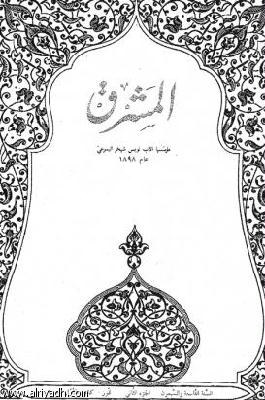 المشرق
مؤسسها الأب لويس شيخو اليسوعي
عام ١٨٩٨
السنة التاسعة والسبعون الجزء الثاني تموز
www.alriyadh.com